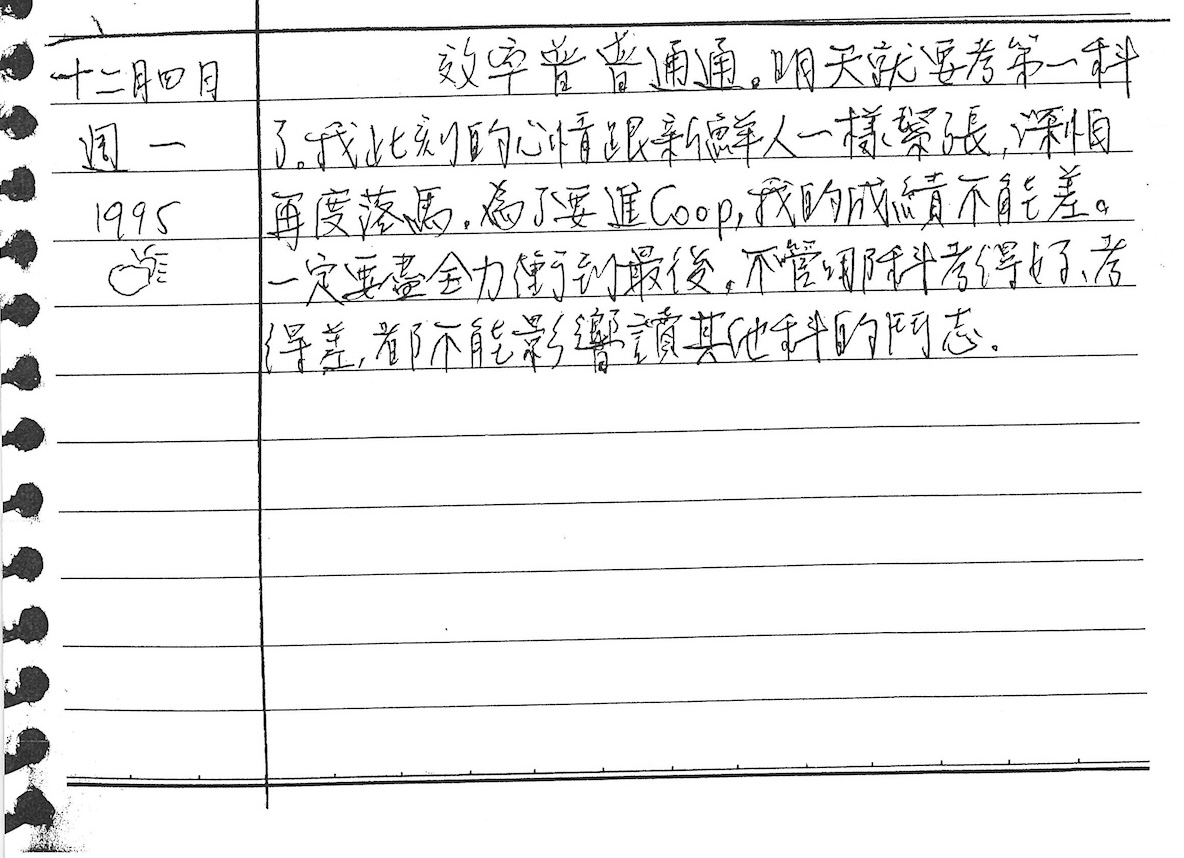 十二月四日
週一
1995
效率普普通通。明天就要考第一科
了。我此刻的心情跟新鮮人一樣緊張,深怕
再度落馬。為了要進Coop,我的成績不能差。
一定要盡全力衝到最後。不管哪科考得好、考
得差,都不能影響讀其他科的鬥志。